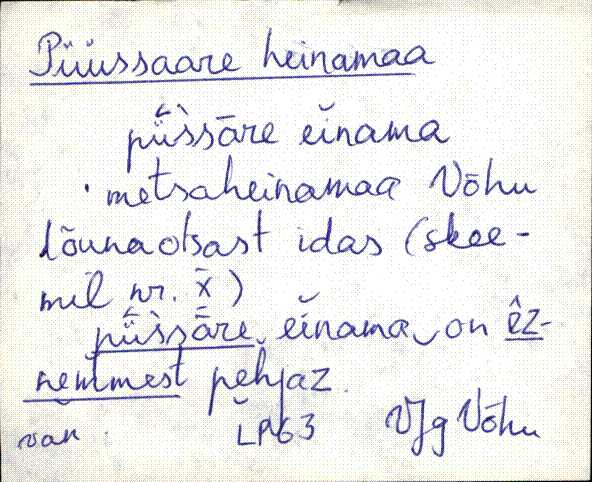 Püüssaare heinamaa
pǖ̀ssāre eĭnama
metsaheinamaa Võhu
lõunaotsast idas (skee-
mil nr. x̄)
pǖ̀ssāre eĭnama on êz-
nemmest pehjaz
van LP63 VJg Võhu